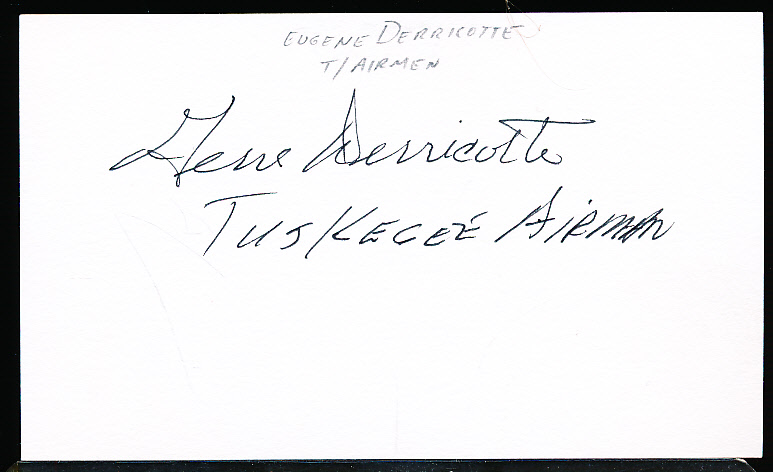 EUGENE DERRICOTTE
T/AIRMEN
Gene Derricotte
TUSKEGEE AIRMAN